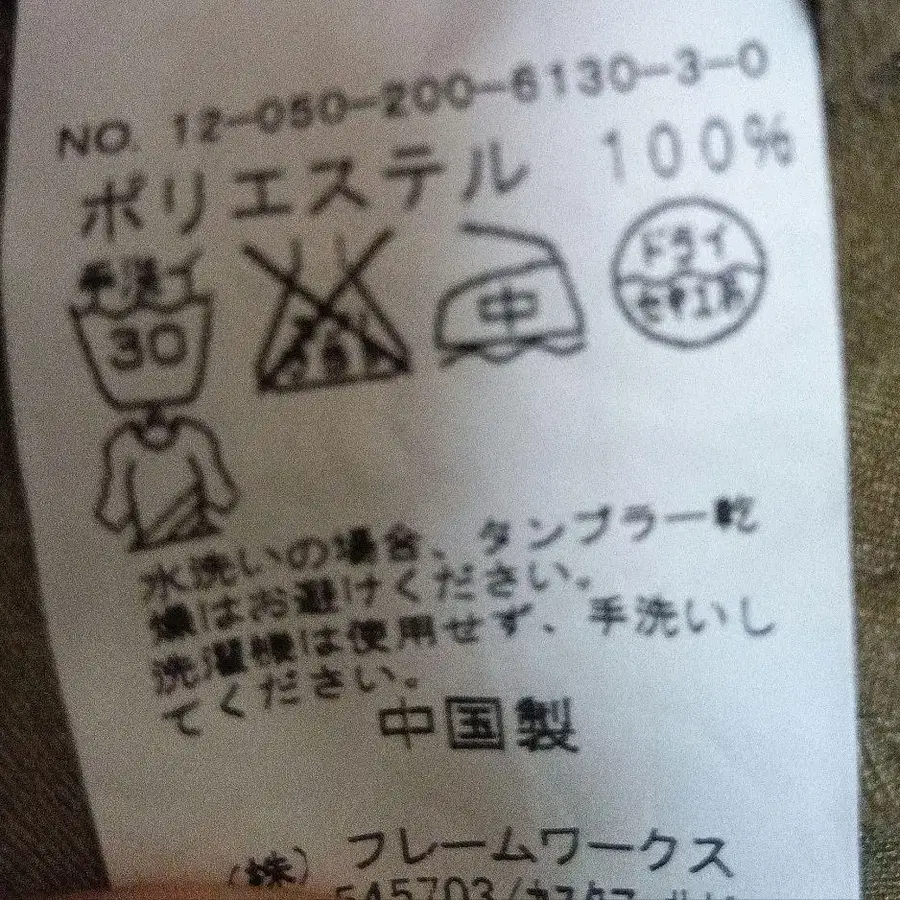 NO. 12-050-200-6130-3-0
ポリエステル 100%
手洗イ
30
中
ドライ
セキユ系
水洗いの場合、タンブラー乾
燥はお避けください。
洗濯機は使用せず、手洗いし
てください。
中国製
(株) フレームワークス
545703/カスタマー